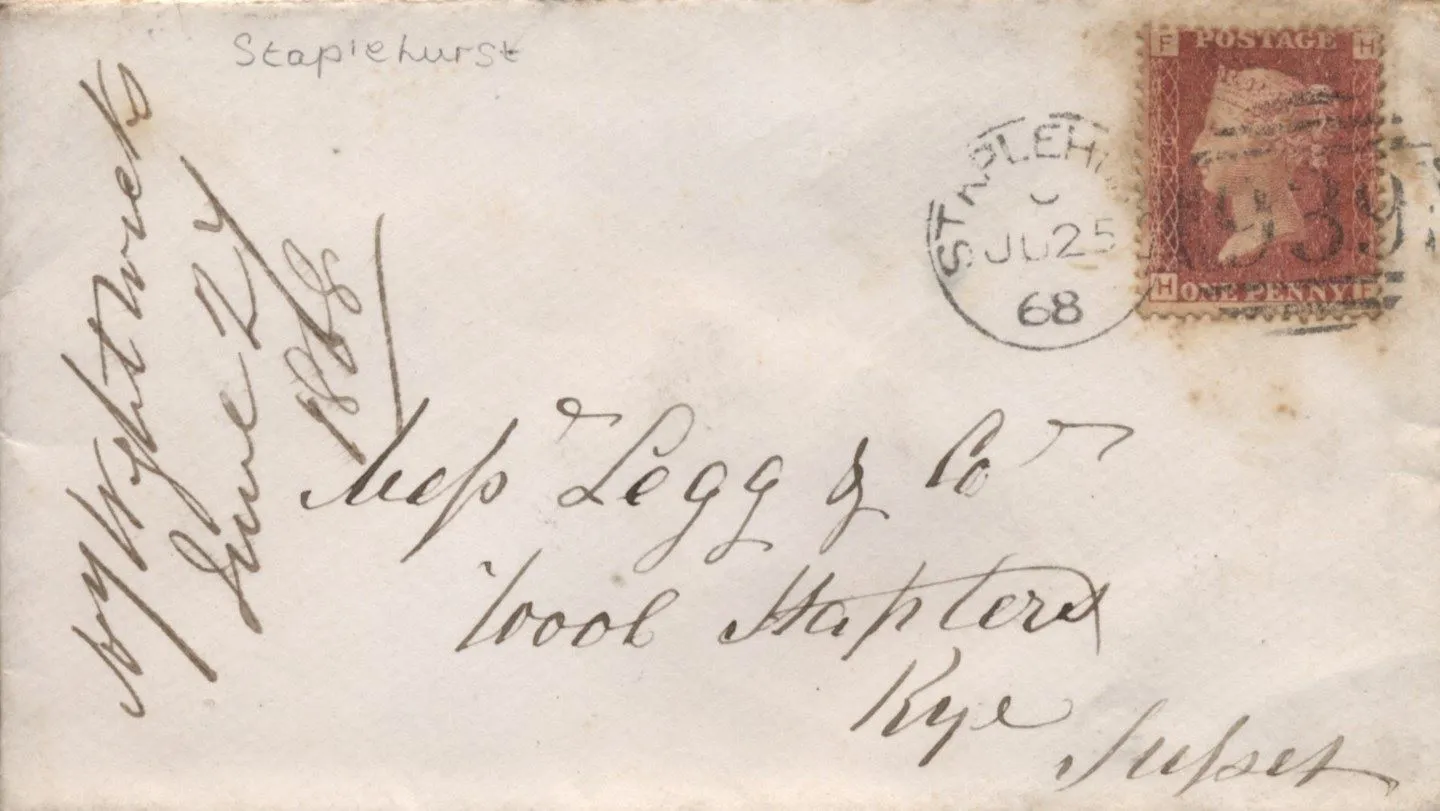 Staplehurst
F POSTAGE H
H ONE PENNY F
STAPLEHU
JU 25
68
939
Wightwick
June 24
1868
Messr Legg & Co
Wool Staplers
Rye
Sussex